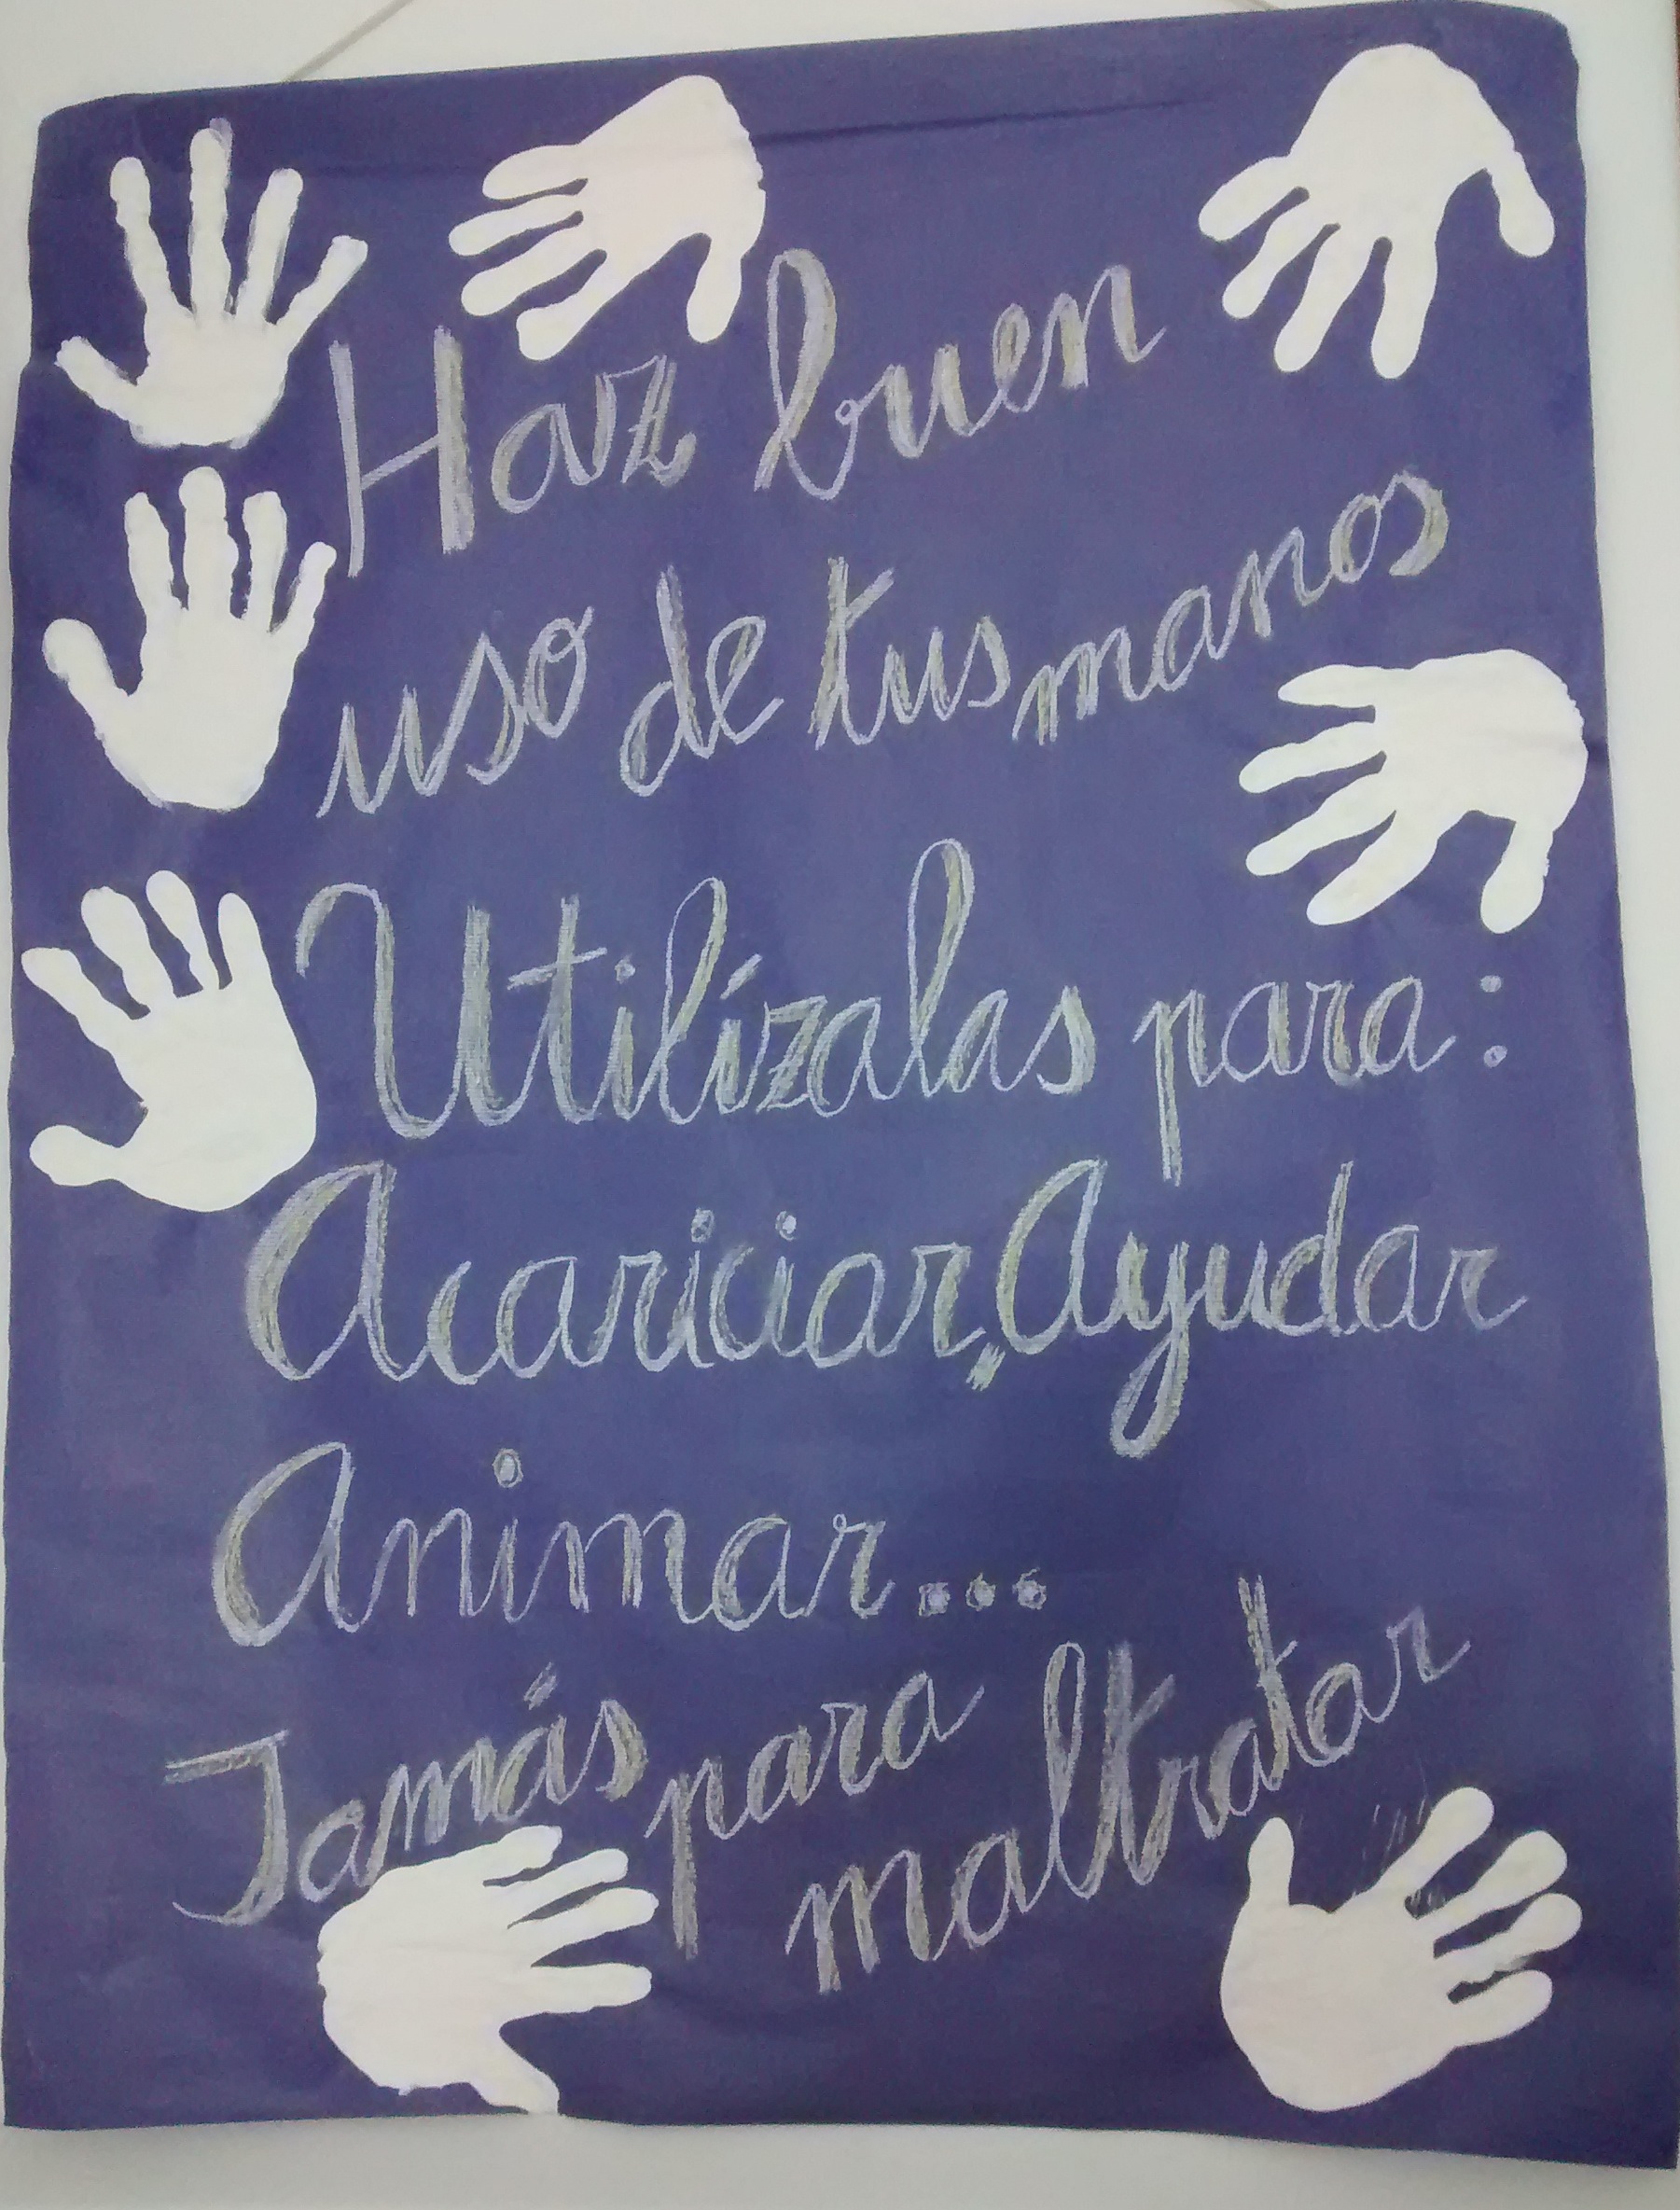 Haz buen
uso de tus manos
Utilízalas para:
Acariciar, Ayudar
Animar...
Jamás para
maltratar